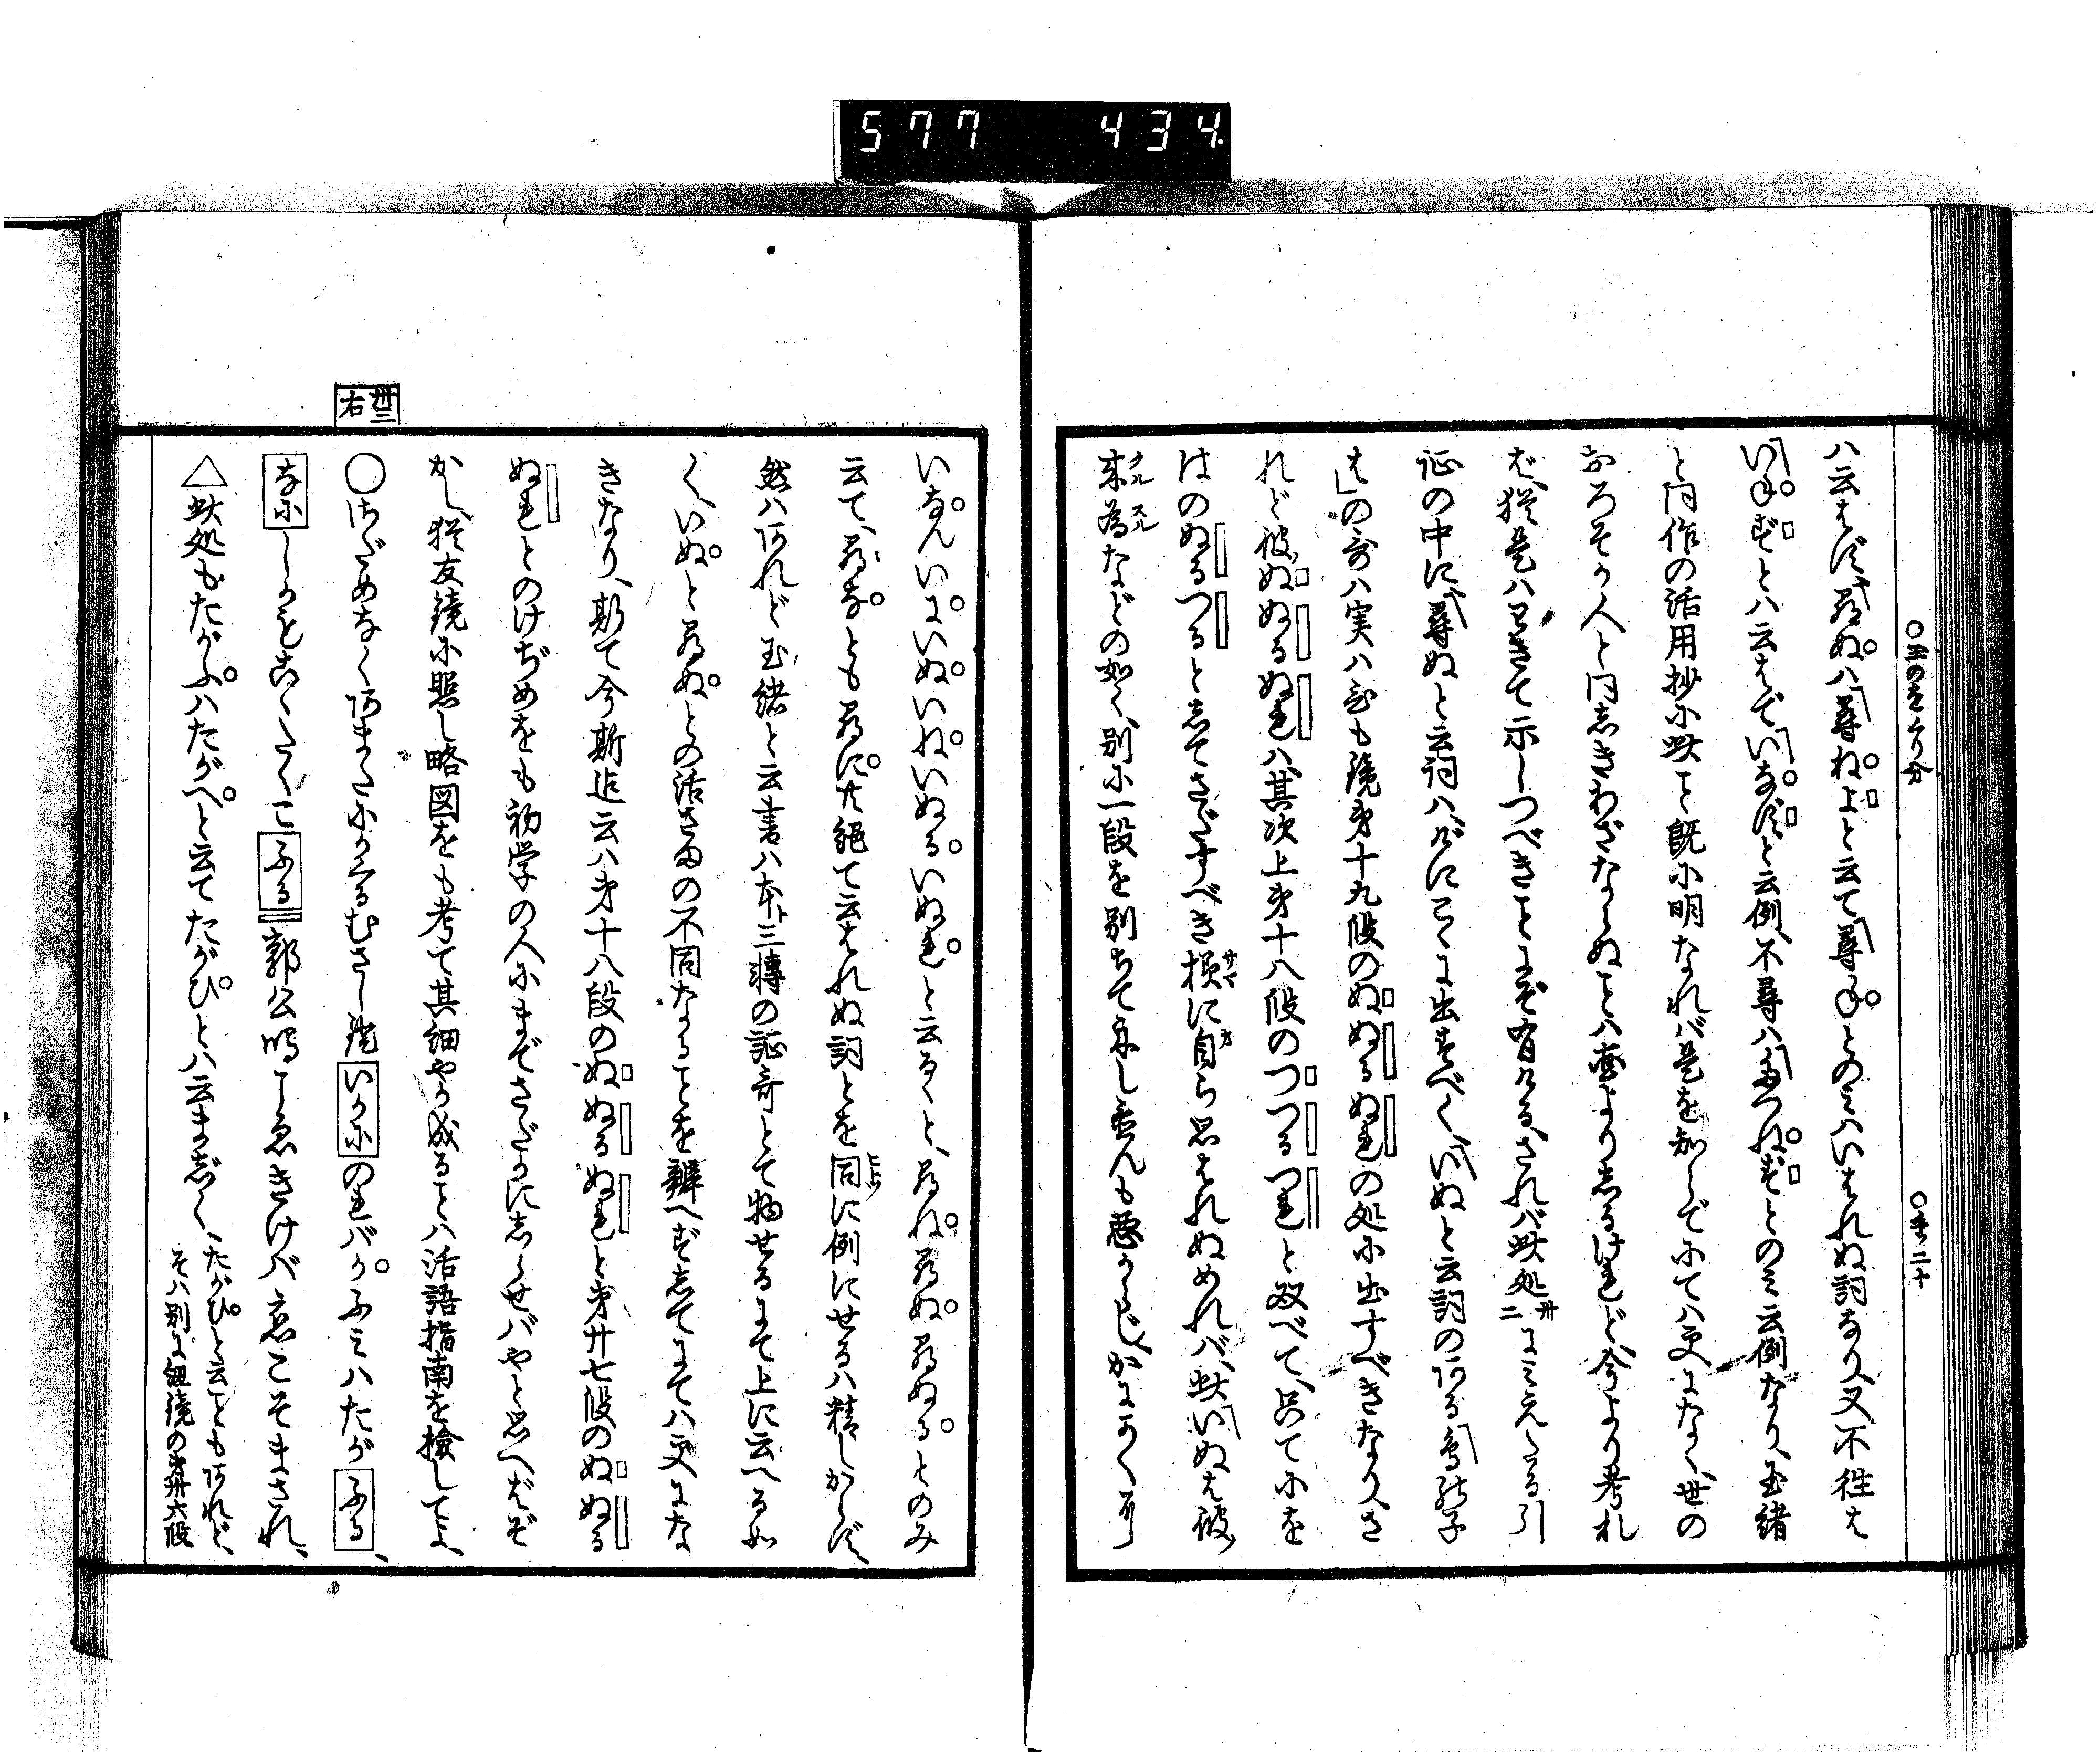 577 434
○玉のをくり分 ○本ノ二十
ハ云はず、尋ぬハ「尋ねよと云て「尋ねとのミハいはれぬ詞なり、又不往は
いねずとハ云はで「いなずと云例、不尋ハ「たづねずとのミ云例なり、玉緒
と同作の活用抄に此こと既に明なれバ是を知らでにてハ更になく、世の
おろそか人と同しきわざならぬことハ固より志るけれど、今より考れ
ば、猶是ハわきて示しつべきことにぞ有ける、されバ此処卅二にミえたる引
証の中に、尋ぬと云詞ハ、げにこゝに出すべく、いぬと云詞のある
は」の哥ハ実ハ是も鏡第十九段のぬぬるぬれの処に出すべきなり、さ
れど彼ぬぬるぬれハ、其次上第十八段のつつるつれと双べて、总てにを
はのぬるつると志てさだすべき様に自ら思はれぬめれバ、此いぬは彼
来為などの如く、別に一段を別ちて示し置んも悪からじ、かにかく
いなんいにいぬいねいぬるいぬれと云るゝと、尋ね尋ぬ尋ぬるとのみ
云て、尋なとも尋にとも絶て云はれぬ詞とを同に例にせるハ精しからず、
然ハあれど玉緒と云書ハ本ト三轉の証哥とて物せるにて上に云へる如
く、いぬと尋ぬとの活ざまの不同なることを辨へず志てにてハ更にな
きなり、斯て今斯迄云ハ第十八段のぬぬるぬれと第廿七段のぬぬる
ぬれとのけぢめをも初学の人にまでさだかに志らせバやと思へばぞ
かし、猶友鏡に照し略図をも考て其細やか成ることハ活語指南を撿してよ、
卅三右
○さだめなくあまたにかくるむさし鐙いかにのれバかふミハたがふる、
なにしかもこゝたくこふる郭公鳴こゑきけバ恋こそまされ、
△此処もたがふハたがへと云てたがひとハ云まじく、たがひと云こともあれど、
そハ別に紐鏡の第卅六段